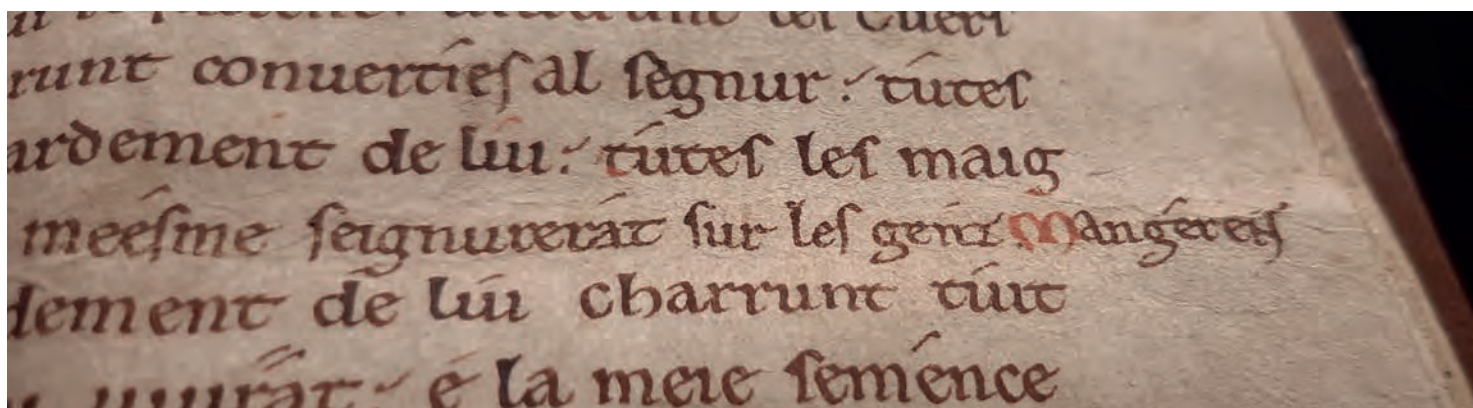 runt conuertíeſ al ſegnur ؛ túteſ
ardement de lui ؛ túteſ leſ maig
meeſme ſeignurerát ſur leſ genz
dement dé lúi charrunt túit
uiurát ؛ é la meie ſeménce